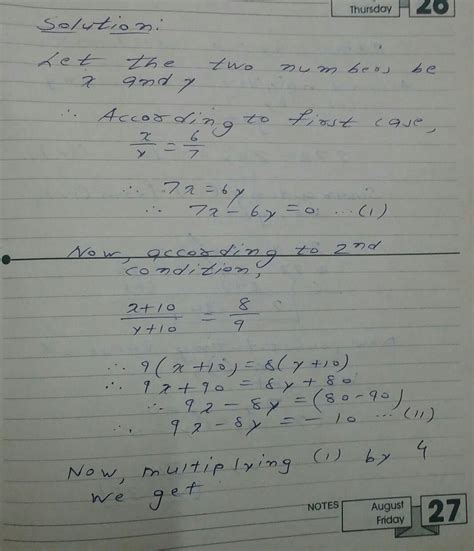 Thursday 26
Solution:
Let the two numbers be
x and y
∴ According to first case,
x/y = 6/7
∴ 7x = 6y
∴ 7x - 6y = 0 ... (1)
Now, according to 2nd
condition,
x+10/y+10 = 8/9
∴ 9(x+10) = 8(y+10)
∴ 9x + 90 = 8y + 80
∴ 9x - 8y = (80-90)
∴ 9x - 8y = - 10 ... (11)
Now, multiplying (1) by 4
we get
NOTES August Friday 27